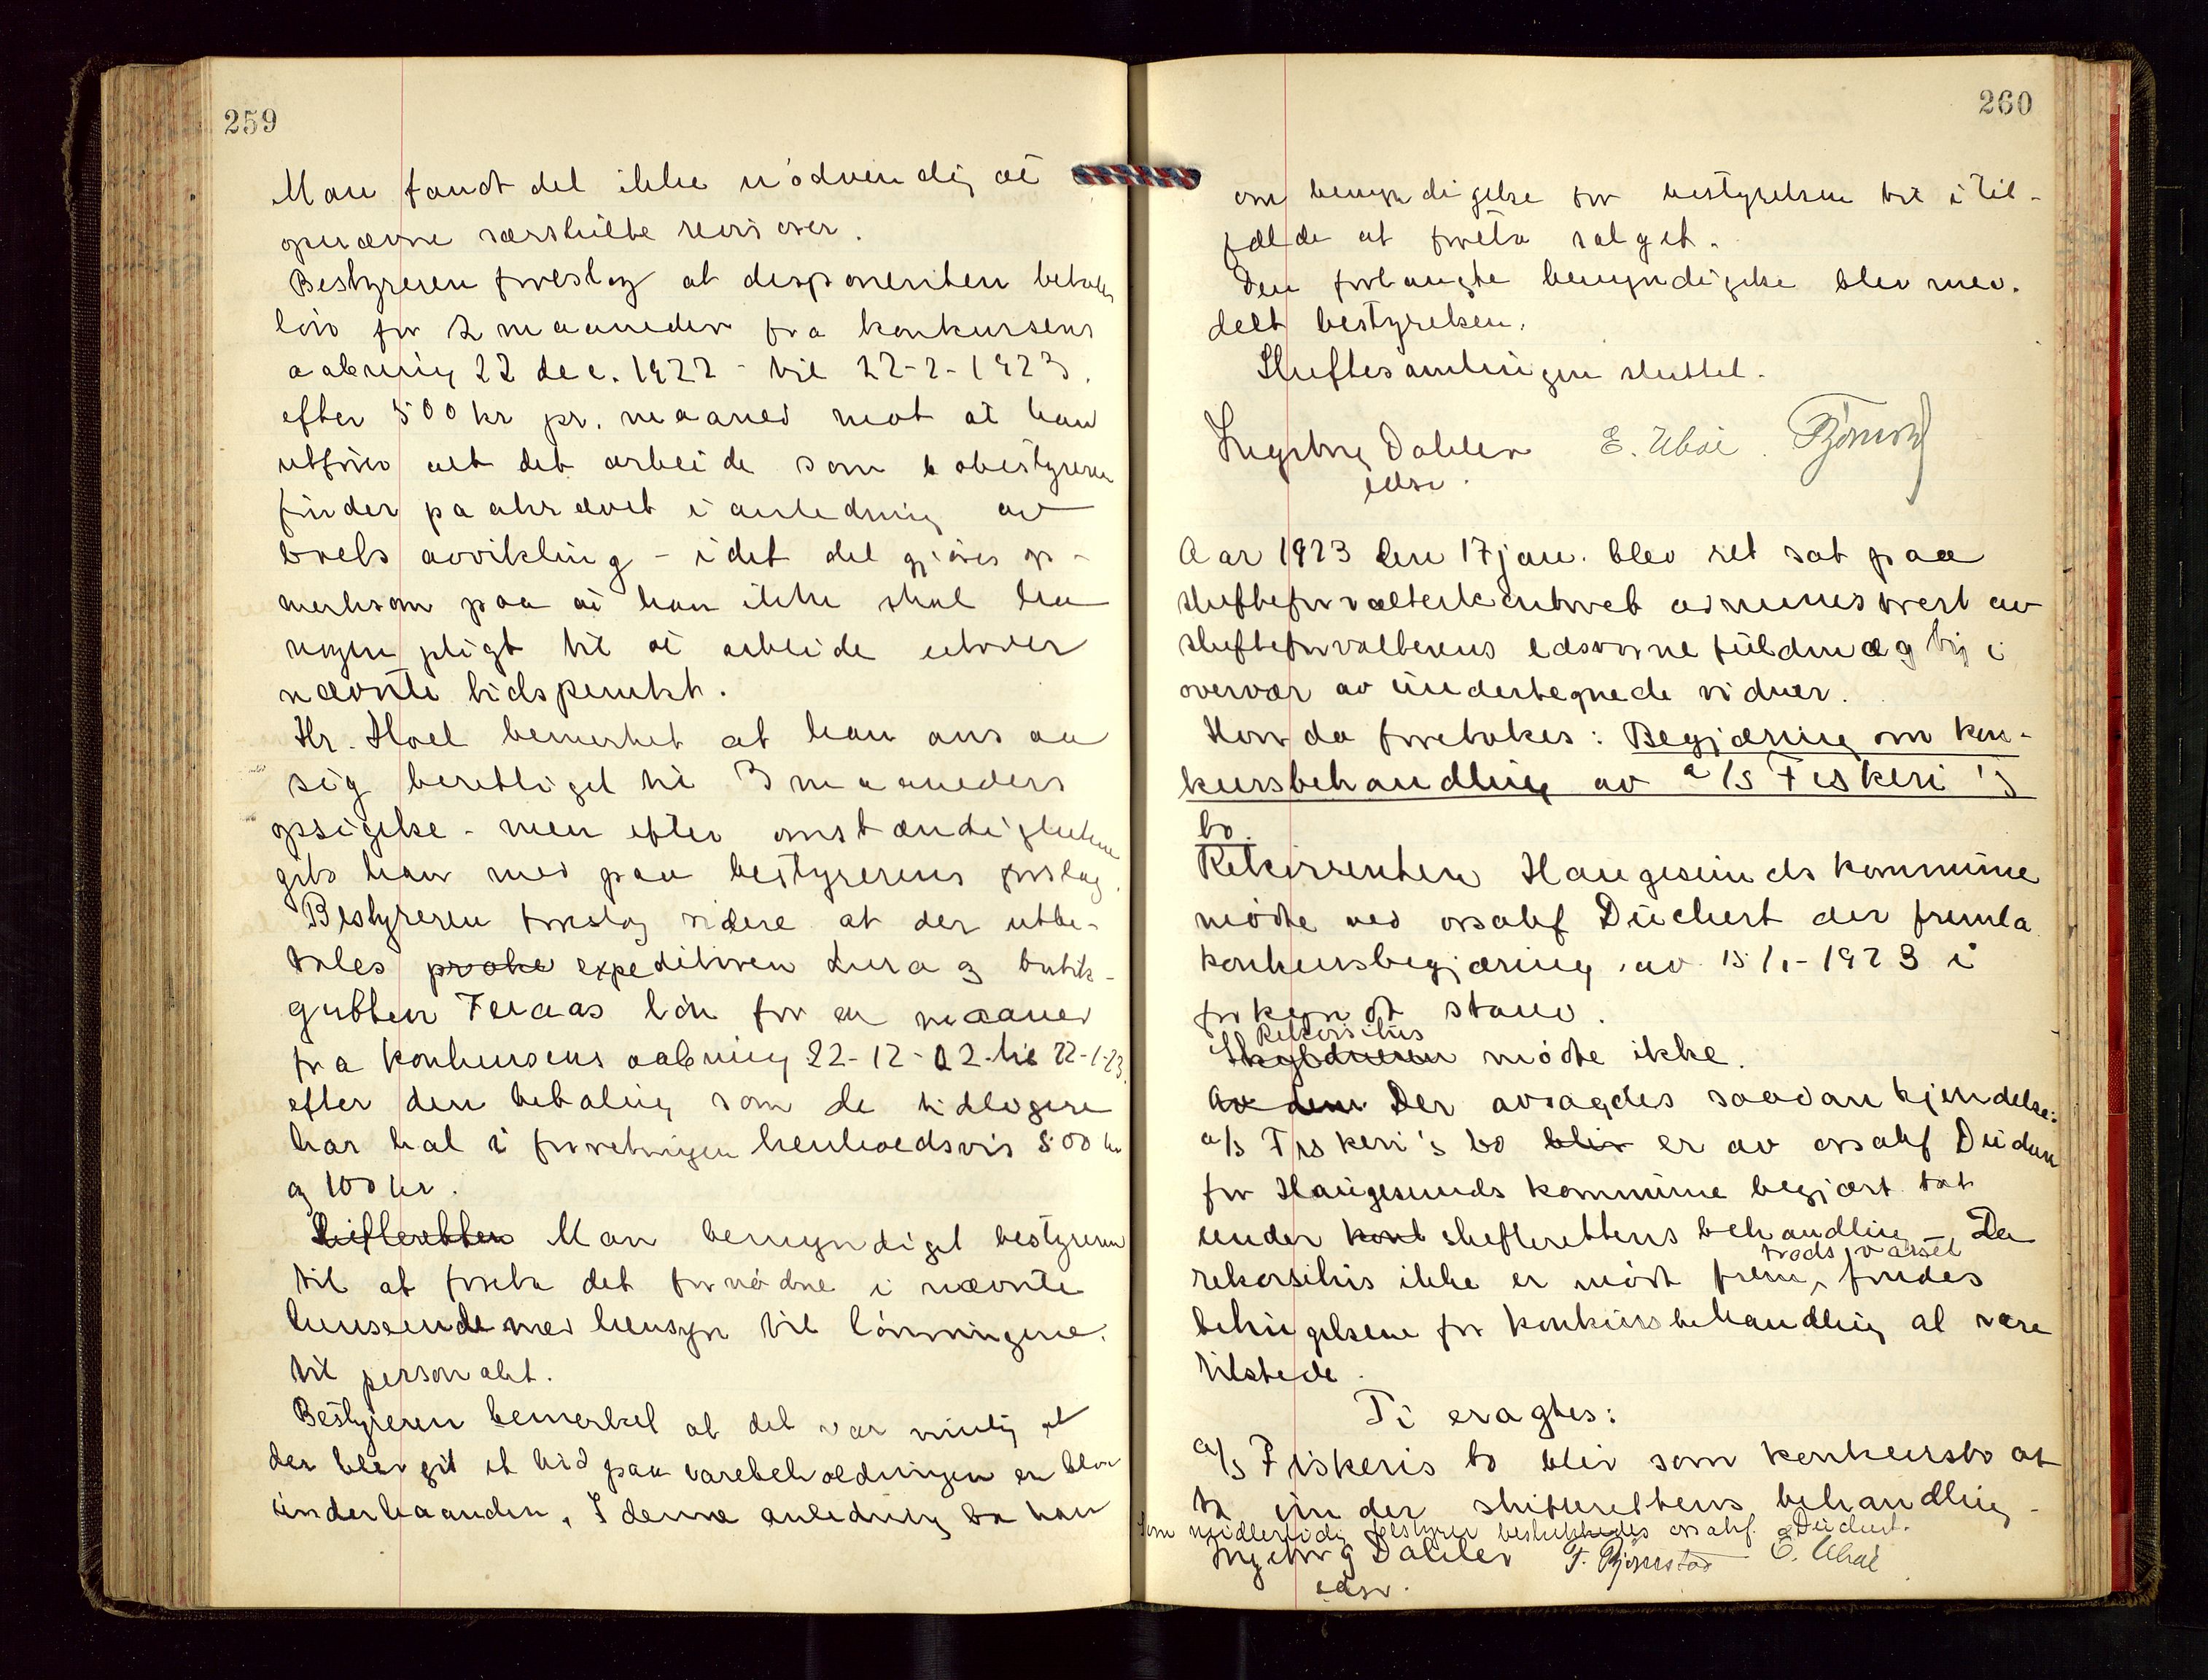 259
Man fandt det ikke nödvendig at
opnævne særskilte revisorer.
Bestyreren foreslog at disponenten betales
lön for 2 maaneder fra konkursens
aabning 22 dec. 1922 - til 22-2-1923.
efter 500 kr pr. maaned mot at han
utförer alt det arbeide som bobestyreren
finder paakrævet i anledning av
boets avvikling - idet det gjöres op-
merksom paa at han ikke skal ha
nogen pligt til at arbeide utover
nævnte tidspunkt.
Hr. Hoel bemerket at han ansaa
sig berettiget til 3 maaneders
opsigelse - men efter omstændighetene
gik han med paa bestyrerens forslag.
Bestyreren foreslog videre at der utbe-
tales expeditricen Lura og butik-
gutten Feraas lön for en maaned
fra konkursens aabning 22-12-22 til 22-1-23.
efter den betaling som de tidligere
har hat i forretningen henholdsvis 500 kr
og 100 kr.
Skifteretten Man bemyndiget bestyreren
til at foreta det fornödne i nævnte
henseende med hensyn til lönningene
til personalet.
Bestyreren bemerket at det var mulig at
der blev git et bud paa varebeholdningen en bloc
underhaanden. I denne anledning ba han
260
om bemyndigelse for bestyrelsen til i til-
fælde at foreta salget.
Den forlangte bemyndigelse blev med-
delt bestyrelsen.
Skiftesamlingen sluttet.
Ingeborg Dahler E. Uboe. Bjørnstad
edsv.
Aar 1923 den 17 jan. blev ret sat paa
skifteforvalterkontoret administrert av
skifteforvalterens edsvorne fuldmægtig i
overvær av undertegnede vidner.
Hvorda foretokes: Begjæring om kon-
kursbehandling av a/s Fiskeri's
bo.
Rekvirenten Haugesunds kommune
mödte ved orsakf Düchert der fremla
konkursbegjæring av 15/1-1923 i
forkynt stand.
Rekvisitus
Skyldneren mödte ikke.
Av den Der avsagdes saadan kjendelse:
a/s Fiskeri's bo blir er av orsakf Düchert
for Haugesunds kommune begjært tat
under konk skifterettens behandling. Da
trods varsel
rekvisitus ikke er mödt frem, findes
betingelsene for konkursbehandling at være
tilstede.
Ti eragtes:
a/s Fiskeris bo blir som konkursbo at
ta under skifterettens behandling.
Som midlertidig bestyrer beskikkedes orsakf. Düchert.
Ingeborg Dahler T. Bjørnstad E. Uboe
edsv.